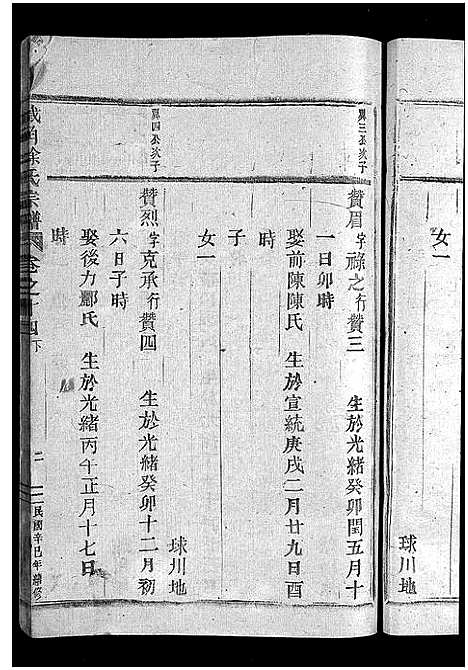 女一
球川地
翼三公次子
贊眉字祿之行贊三 生於光緒癸卯閏五月十
一日卯時
娶前陳陳氏 生於宣統庚戌二月廿九日酉
時
子
女一
球川地
翼四公次子
贊烈字克承行贊四 生於光緒癸卯十二月初
六日子時
娶後力鄭氏 生於光緒丙午正月十七日
時
徐氏宗譜 卷之十四下 二 民國辛巳年續修